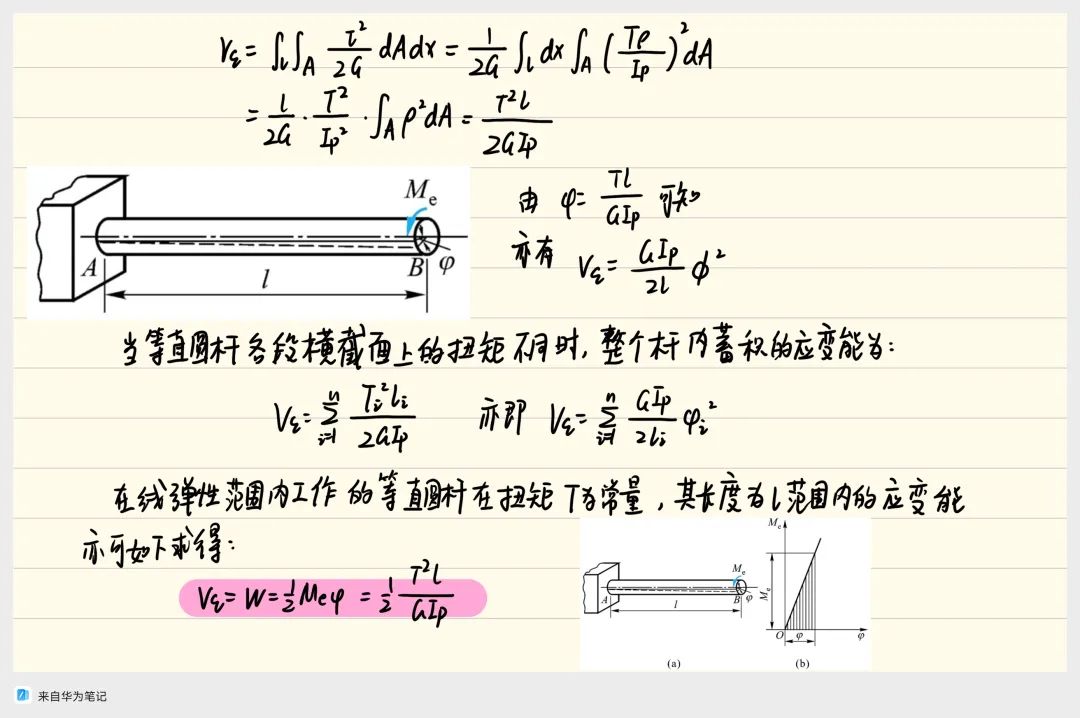 Vε = ∫l∫A τ²/2G dAdx = 1/2G ∫l dx ∫A (Tρ/Ip)² dA
= l/2G · T²/Ip² · ∫A ρ²dA = T²l/2GIp
Me
A
B
φ
l
由 φ = Tl/GIp 可知
亦有 Vε = GIp/2l ϕ²
当等直圆杆各段横截面上的扭矩不同时,整个杆内蓄积的应变能为:
Vε = Σ(i=1, n) Ti²li/2GIp 亦即 Vε = Σ(i=1, n) GIp/2li φi²
在线弹性范围内工作的等直圆杆在扭矩T为常量,其长度为l范围内的应变能
亦可如下求得:
Vε = W = 1/2 Meφ = 1/2 T²l/GIp
Me
A
B
φ
l
(a)
Me
Me
O
φ
φ
(b)
来自华为笔记